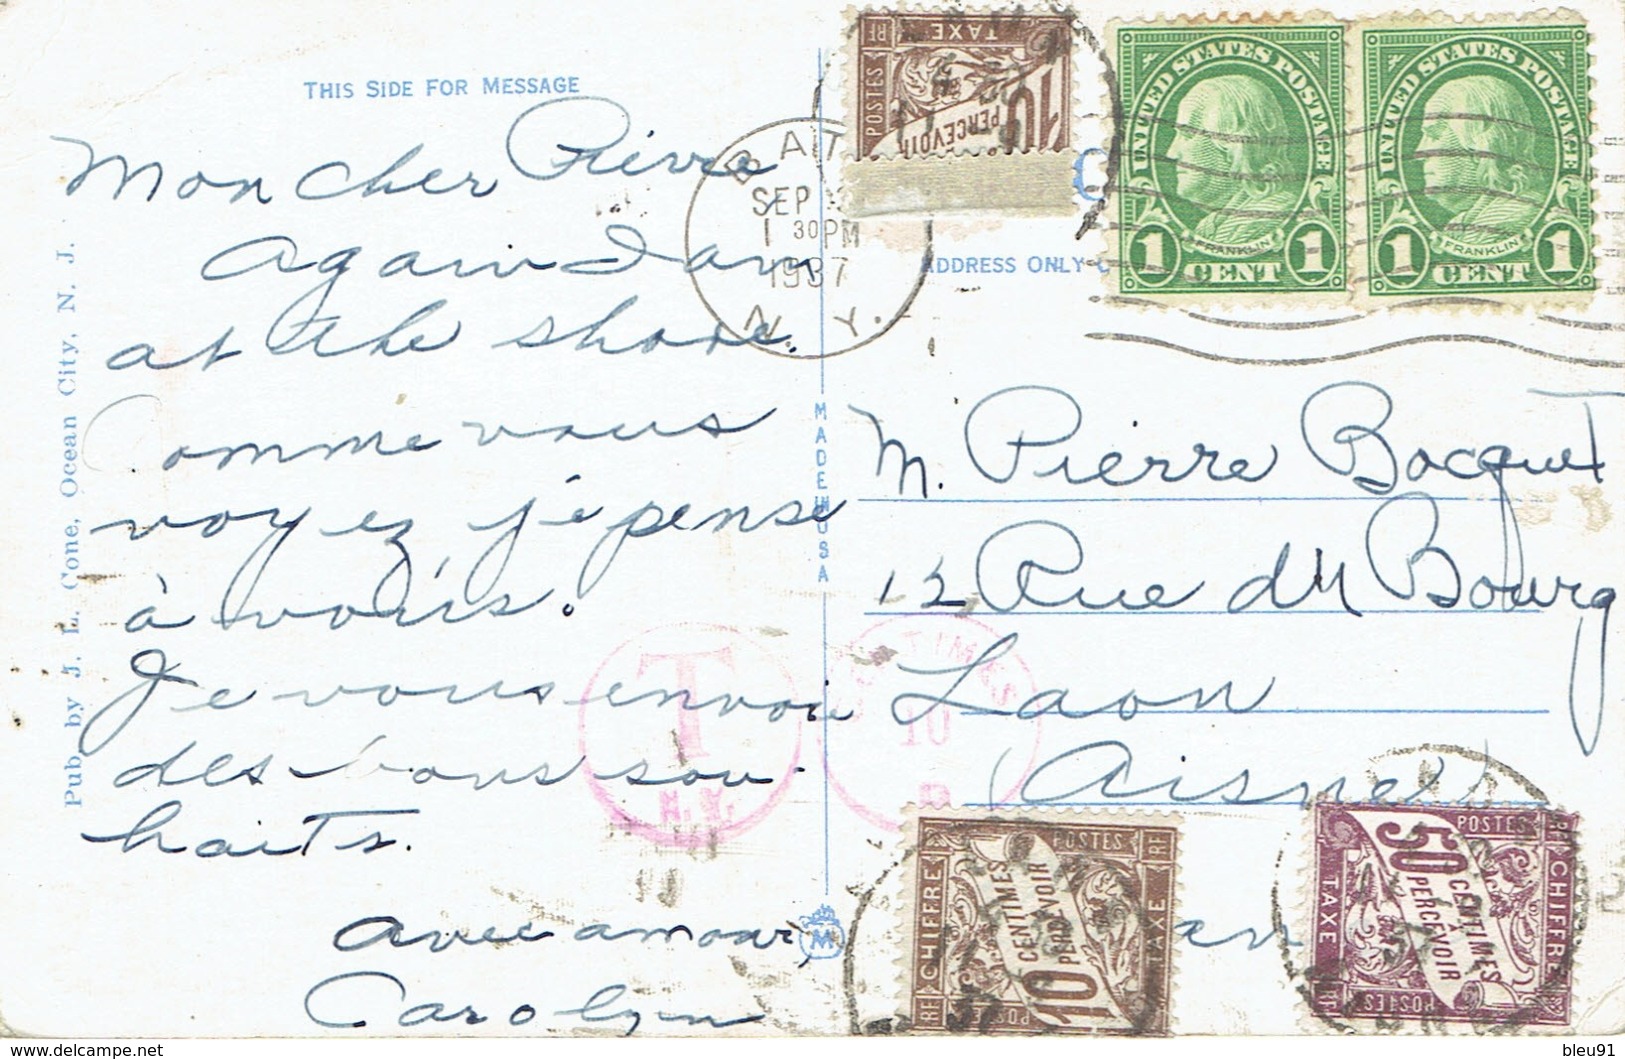 THIS SIDE FOR MESSAGE
Mon cher Pierre
Again I am
at the shore.
Comme vous
voyez je pense
à vous.
Je vous envoie
des bons sou-
haits.
avec amour,
Carolyn
Pub. by J. L. Cone, Ocean City, N. J.
MADE IN USA
M
SEP
1 30PM
1937
N. Y.
ADDRESS ONLY
M. Pierre Bocquet
12 Rue du Bourg
Laon
(Aisne)
UNITED STATES POSTAGE
FRANKLIN
1 CENT 1
UNITED STATES POSTAGE
FRANKLIN
1 CENT 1
POSTES RF
TAXE
10
PERCEVOIR
T
N.Y.
CENTIMES
10
POSTES RF
CHIFFRE TAXE
10 CENTIMES
À PERCEVOIR
RF
POSTES RF
CHIFFRE TAXE
50 CENTIMES
À PERCEVOIR
RF POSTES
delcampe.net
bleu91